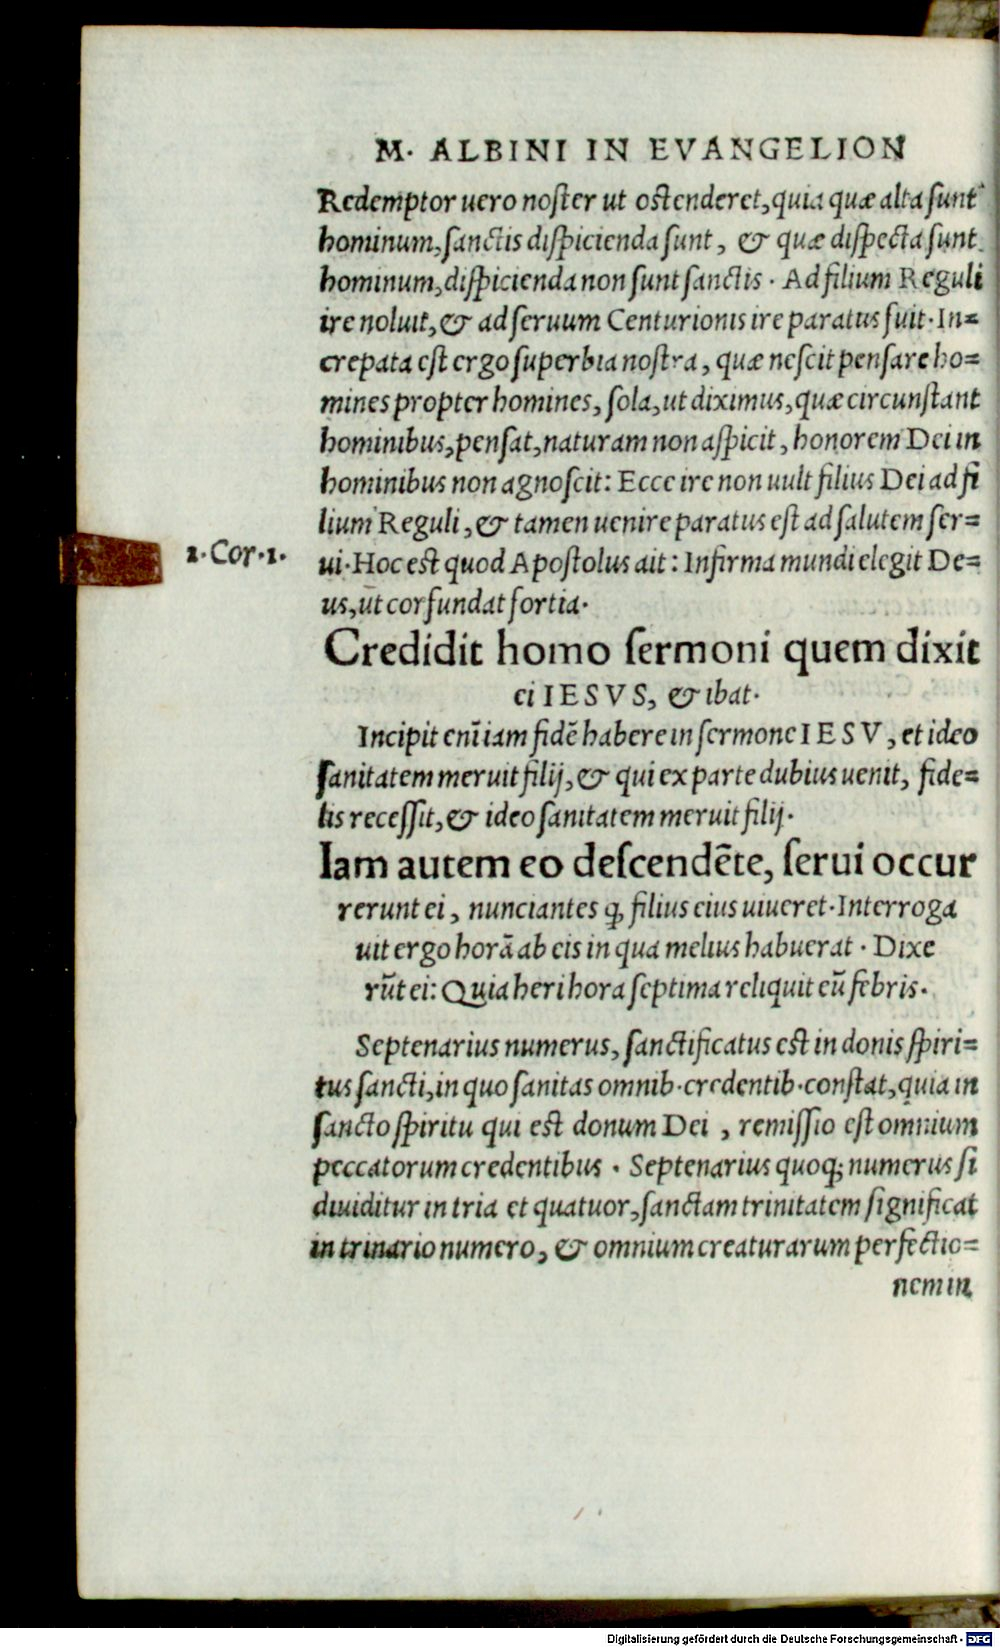 M. ALBINI IN EVANGELION
Redemptor uero noſter ut oſtenderet, quia quæ alta ſunt
hominum, ſanctis diſpicienda ſunt, & quæ diſpecta ſunt
hominum, diſpicienda non ſunt ſanctis. Ad filium Reguli
ire noluit, & ad ſeruum Centurionis ire paratus fuit. In=
crepata eſt ergo ſuperbia noſtra, quæ neſcit penſare ho=
mines propter homines, ſola, ut diximus, quæ circunſtant
hominibus, penſat, naturam non aſpicit, honorem Dei in
hominibus non agnoſcit: Ecce ire non uult filius Dei ad fi
lium Reguli, & tamen uenire paratus eſt ad ſalutem ſer=
1. Cor. 1.
ui. Hoc eſt quod Apoſtolus ait: Infirma mundi elegit De=
us, ut confundat fortia.
Credidit homo ſermoni quem dixit
ei IESVS, & ibat.
Incipit enĩ iam fidẽ habere in ſermone IESV, et ideo
ſanitatem meruit filij, & qui ex parte dubius uenit, fide=
lis receſſit, & ideo ſanitatem meruit filij.
Iam autem eo deſcendẽte, ſerui occur
rerunt ei, nunciantes ꝙ filius eius uiueret. Interroga
uit ergo horã ab eis in qua melius habuerat. Dixe
rũt ei: Quia heri hora ſeptima reliquit eũ febris.
Septenarius numerus, ſanctificatus eſt in donis ſpiri=
tus ſancti, in quo ſanitas omnib. credentib. conſtat, quia in
ſancto ſpiritu qui eſt donum Dei, remiſſio eſt omnium
peccatorum credentibus. Septenarius quoq; numerus ſi
diuiditur in tria et quatuor, ſanctam trinitatem ſignificat
in trinario numero, & omnium creaturarum perfectio=
nem in
Digitalisierung gefördert durch die Deutsche Forschungsgemeinschaft - DFG